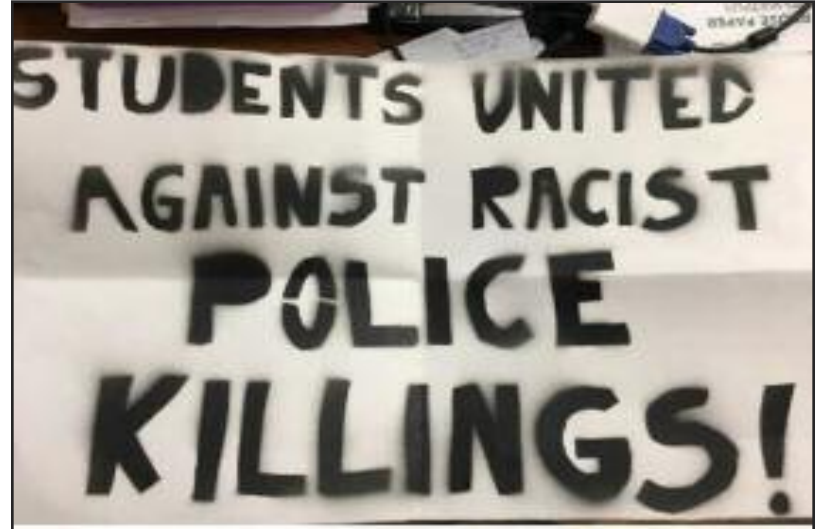 STUDENTS UNITED
AGAINST RACIST
POLICE
KILLINGS!